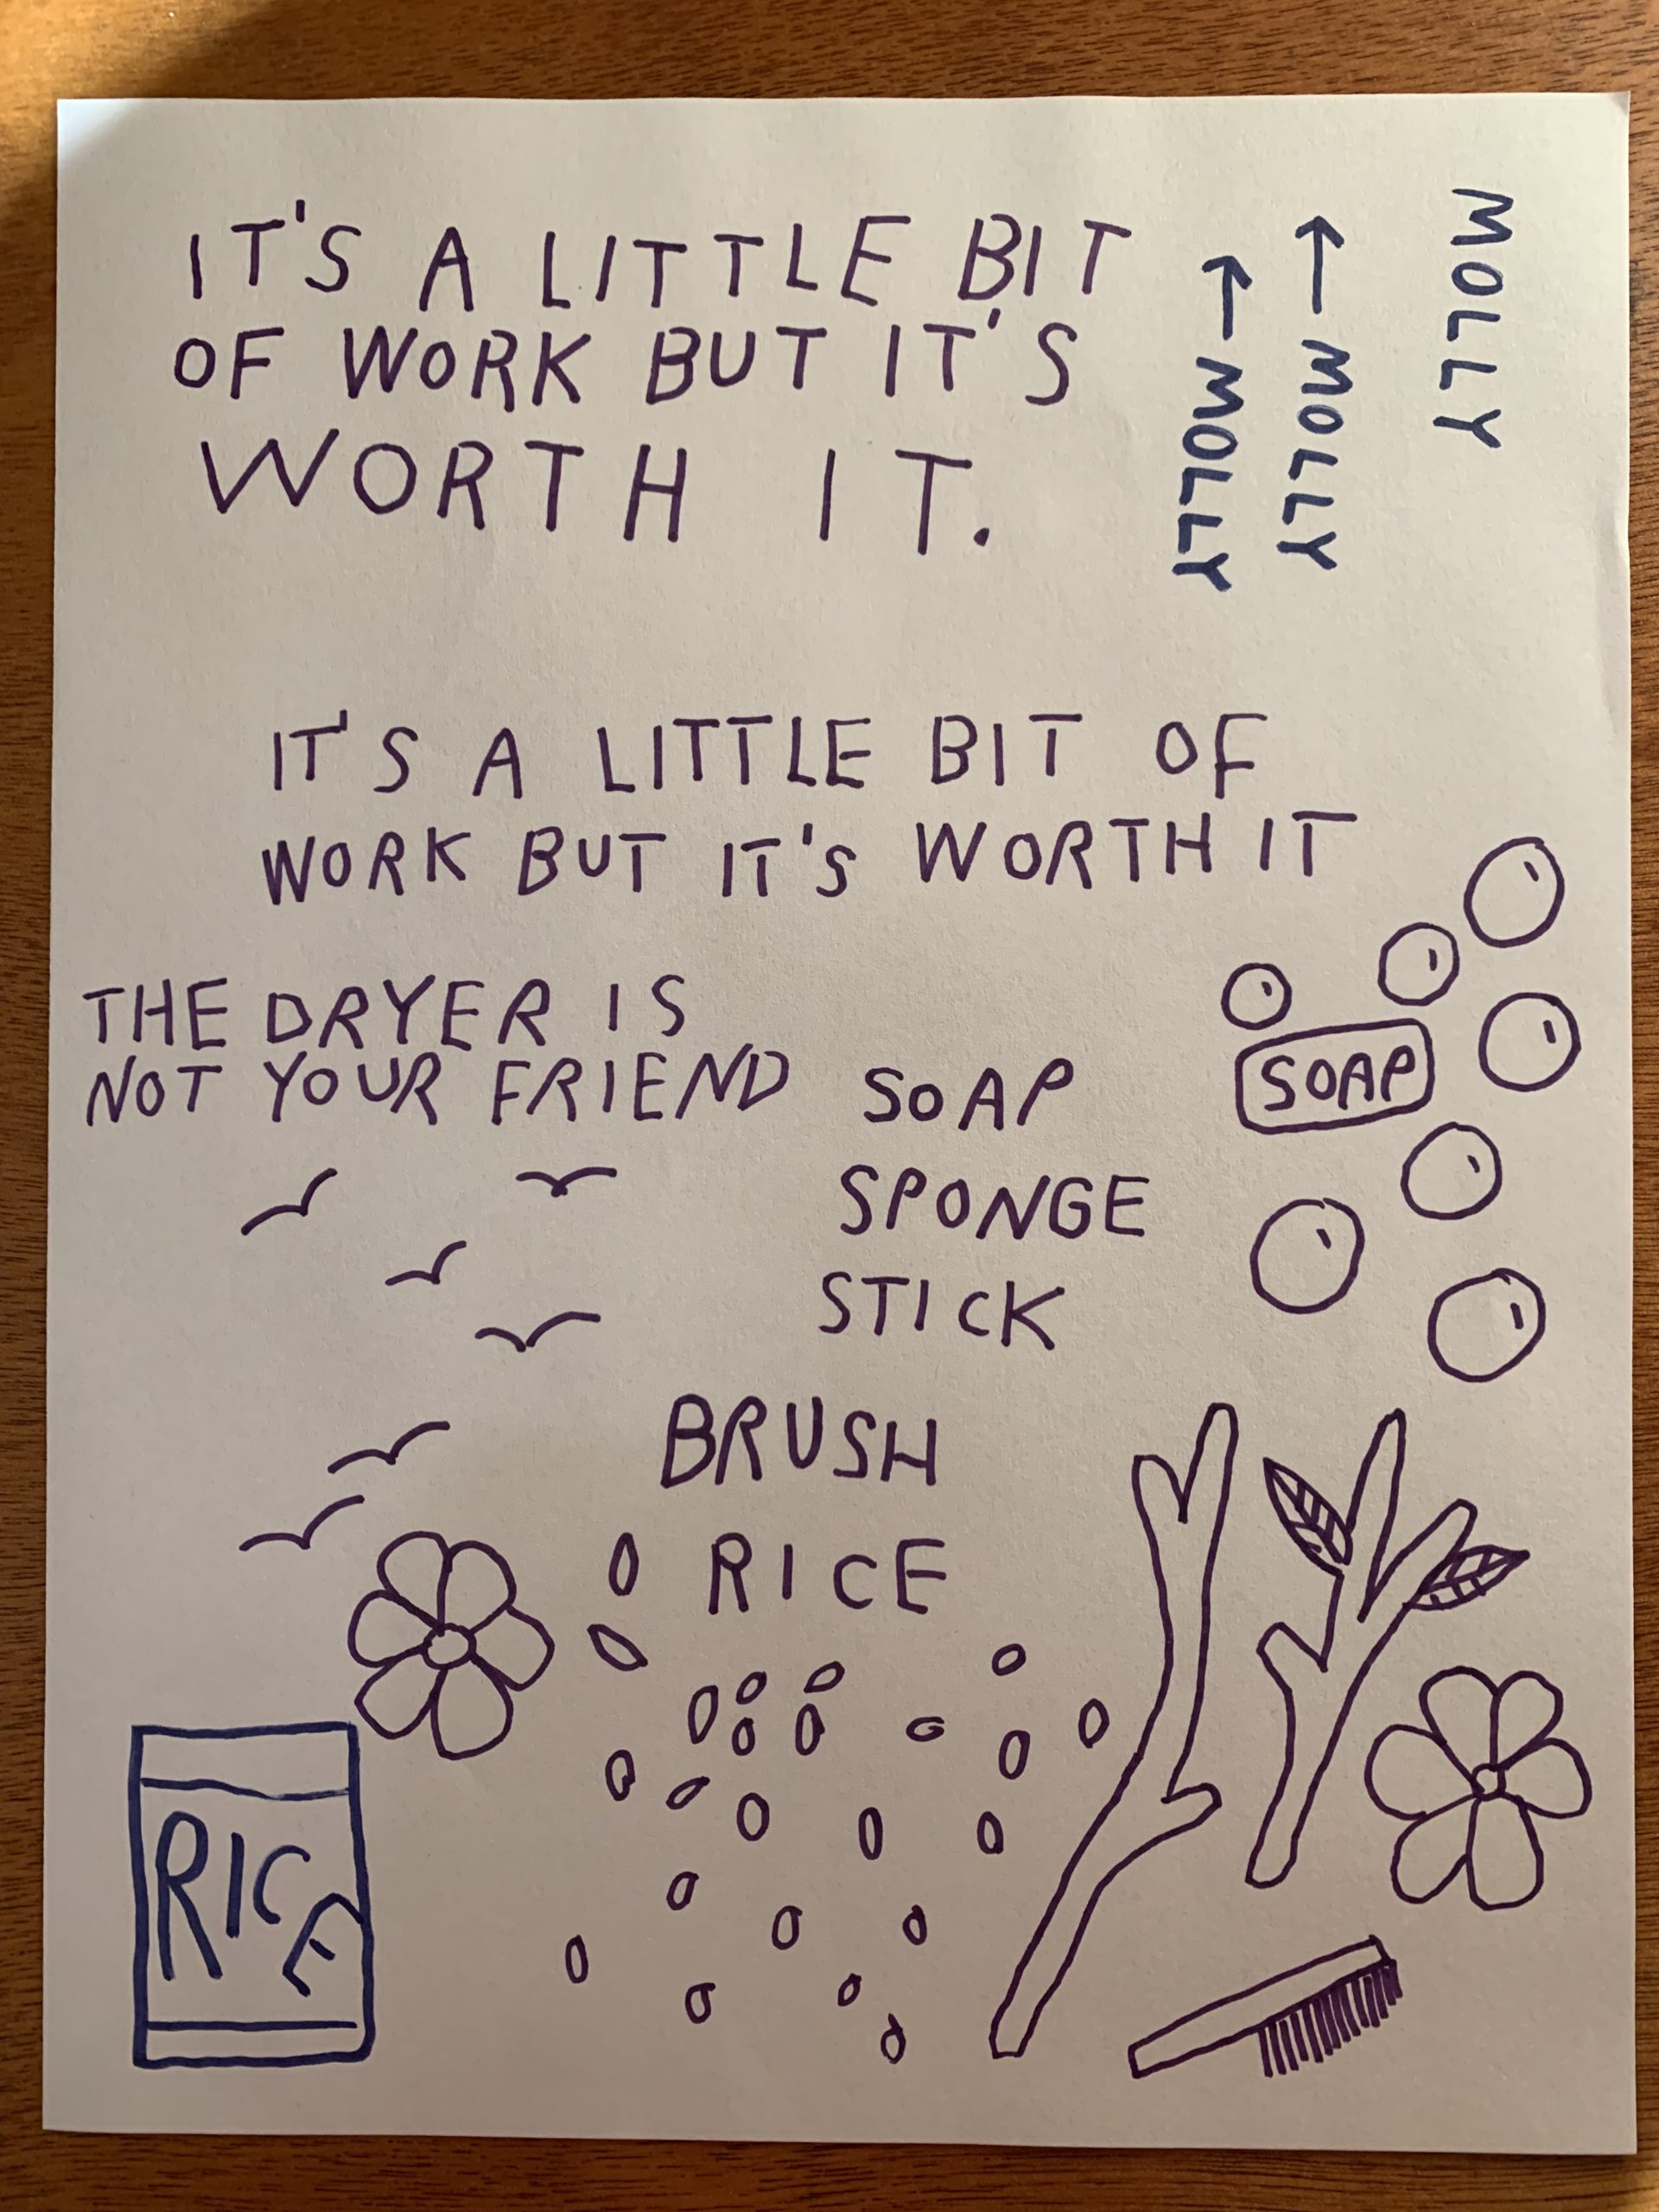 IT'S A LITTLE BIT
OF WORK BUT IT'S
WORTH IT.
MOLLY
→ MOLLY
→ MOLLY
IT'S A LITTLE BIT OF
WORK BUT IT'S WORTH IT
THE DRYER IS
NOT YOUR FRIEND
SOAP
SOAP
SPONGE
STICK
BRUSH
RICE
RICE